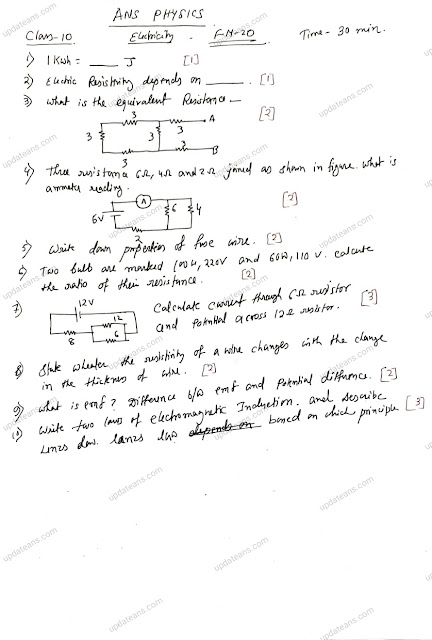 ANS PHYSICS
Class-10 Electricity. F.M-20 Time- 30 min.
1) 1 Kwh = ____ J [1]
2) Electric Resistivity depends on ____. [1]
3) What is the equivalent Resistance - [2]
3 3 A
3 3
3 3 B
4) Three resistance 6Ω, 4Ω and 2Ω joined as shown in figure. what is
ammeter reading. [2]
A
6V 6 4
2
5) Write down properties of fuse wire. [2]
6) Two bulb are marked 100W, 220V and 60W, 110V. calculate
the ratio of their resistance. [2]
7) 12V Calculate current through 6Ω resistor [3]
12 and potential across 12Ω resistor.
8 6
8) State wheater the resistivity of a wire changes with the change
in the thickness of wire. [2]
9) what is emf? Difference b/w emf and Potential difference. [2]
10) Write two laws of electromagnetic Induction. and describe
Lenzs law. Lanzs law depends on based on which principle [3]
updateans.com